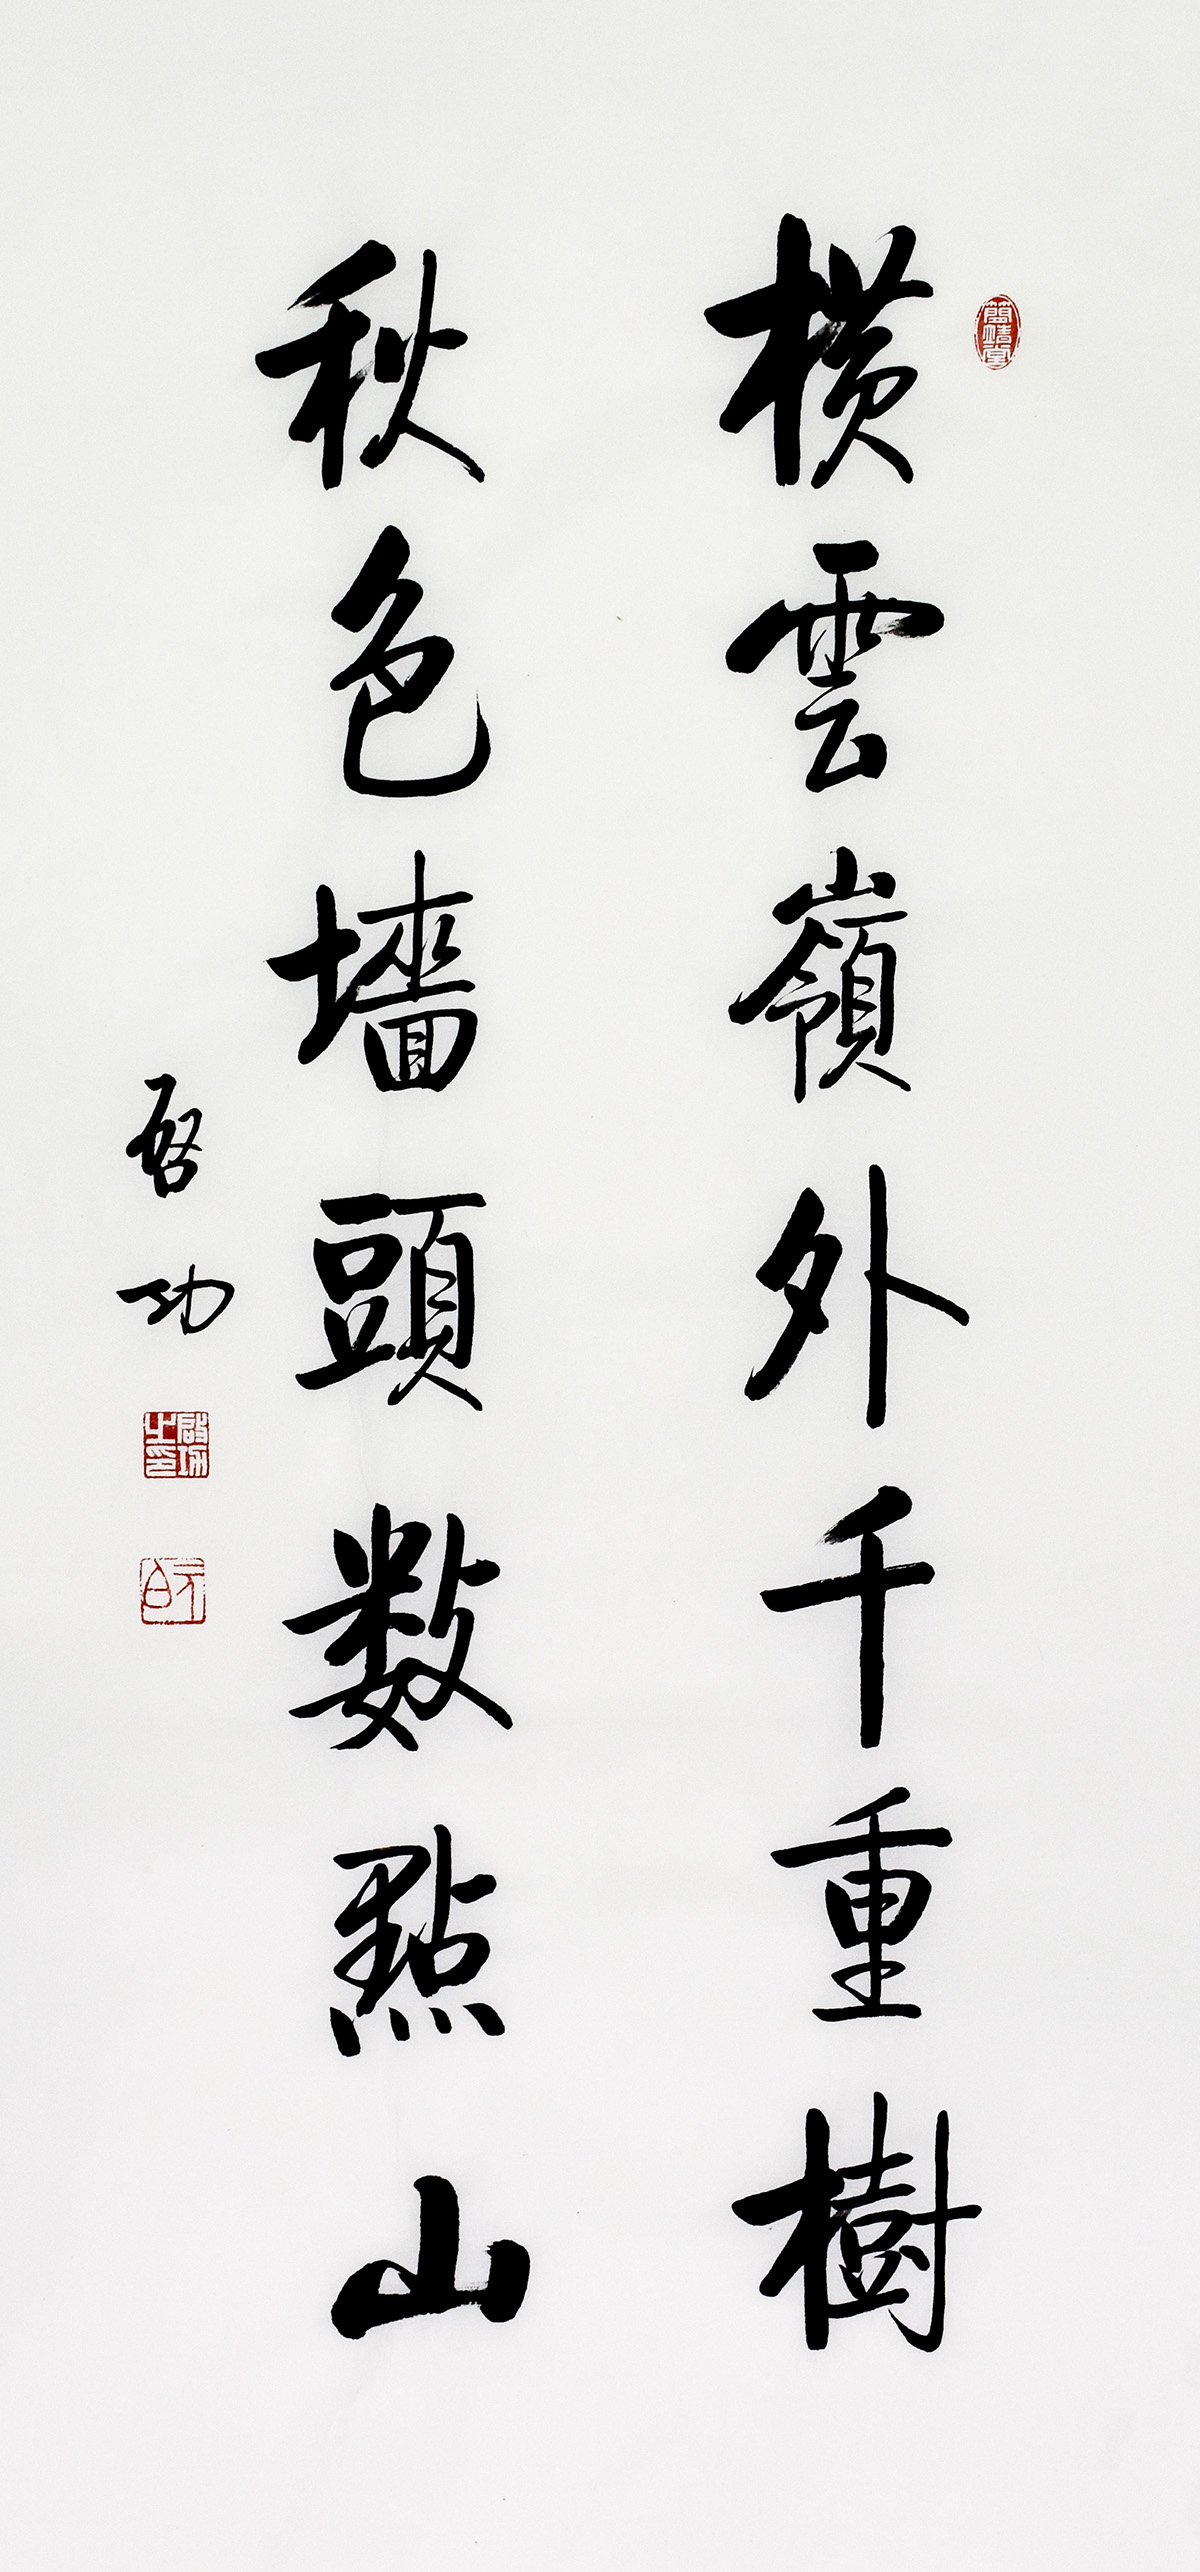 橫雲嶺外千重樹
秋色墻頭數點山
啓功
簡靖堂
啟功之印
元白